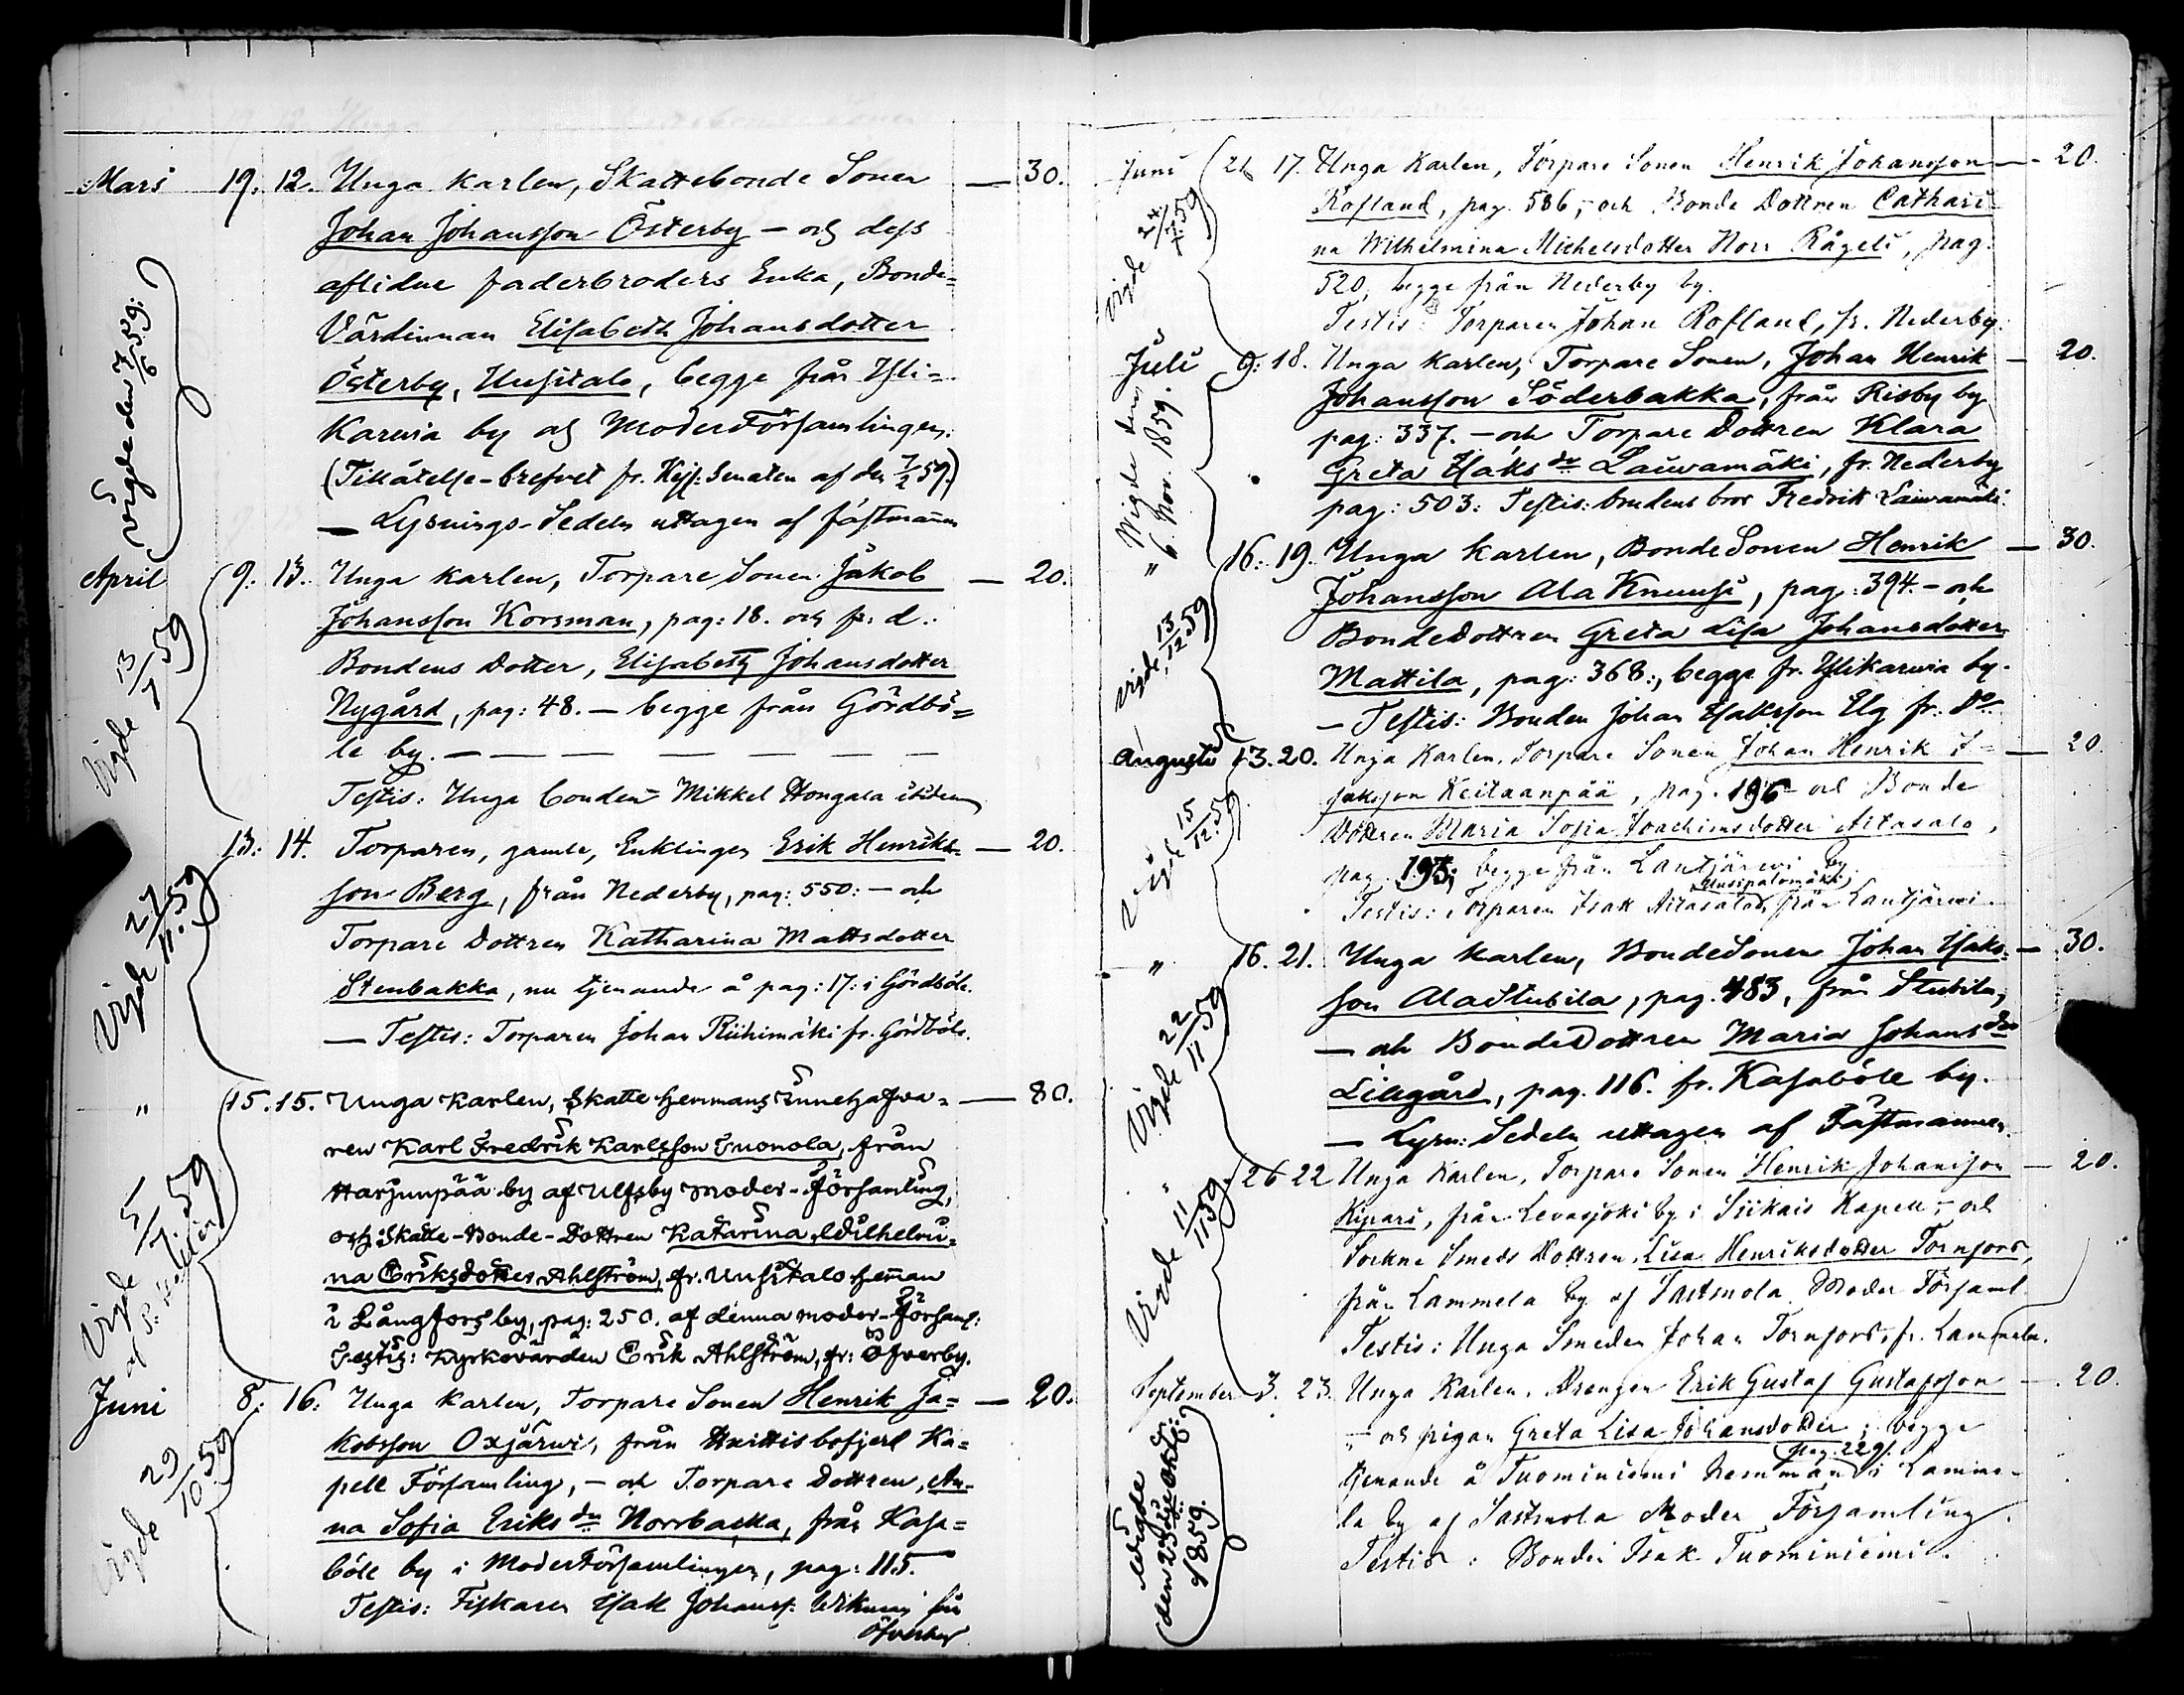 Mars 19. 12. Unga karlen, Skattebonde Sonen — 30.
Johan Johansson Österby — och dess
aflidne faderbroders Enka, Bonde-
Värdinnan Elisabeth Johansdotter
Österby, Uusitalo, begge från Yli-
Karwia by af ModerFörsamlingen.
(Tillåtelse-brefvet fr. Kejs: Senaten af den 7/2 59.)
— Lysnings-Sedeln uttagen af fästmannen
Vigde den 7/6 59.
April 9. 13. Unga karlen, Torpare Sonen Jakob — 20.
Johansson Korsman, pag: 18. och fr. d.
Bondens Dotter, Elisabeth Johansdotter
Nygård, pag: 48. — begge från Gördbö-
le by. —
Testis: Unga bonden Mikkel Hongala ibidem
Vigde 13/7 59
13: 14. Torparen, gamle, Enklingen Erik Henriks- — 20.
son Berg, från Nederby, pag: 550: — och
Torpare Dottren Katharina Mattsdotter
Stenbakka, nu tjenande å pag: 17: i Gördböle.
— Testis: Torparen Johan Riihimäki fr. Gördböle.
Vigde 27/11 59
" 15. 15. Unga karlen, Skatte hemmans Innehafva- — 80.
ren Karl Fredrik Karlsson Juonola, från
Harjunpää by af Ulfsby Moder-Församling,
och Skatte-Bonde-Dottren Katarina Wilhelmi-
na Eriksdotter Ahlström, fr. Uusitalo heman
i Långfors by, pag: 250. af denna moder-Församl:
Testis: Kyrkovärden Erik Ahlström, fr: Öfverby.
Vigde 5/7 59
Juni 8. 16. Unga karlen, Torpare Sonen Henrik Ja- — 20.
kobsson Oxjärwi, från Hvittisbofjerd Ka-
pell Församling, — och Torpare Dottren, An-
na Sofia Eriks dr Norrbacka, från Kasa-
böle by i ModerFörsamlingen, pag: 115.
Testis: Fiskaren Isak Johanss: Wikman från
Öfverby
Vigde 29/10 59
Juni 26 17. Unga Karlen, Torpare Sonen Henrik Johansson — 20.
Rofland, pag. 586, — och Bonde Dottren Cathari-
na Wilhelmina Michelsdotter Norr Rågeli, pag.
520, begge från Nederby by.
Testis: Torparen Johan Rofland, fr. Nederby.
Vigde 24/7 59
Juli 9: 18. Unga karlen, Torpare Sonen, Johan Henrik — 20.
Johansson Söderbakka, från Risby by
pag: 337. — och Torpare Dottren Klara
Greta Isaks dr Lauwamäki, fr. Nederby
pag: 503: Testis: brudens bror Fredrik Lauwamäki.
Wigde den
" 6. Nov. 1859.
16: 19. Unga karlen, BondeSonen Henrik — 30.
Johansson Ala Knuusi, pag: 394. — och
BondeDottren Greta Lisa Johansdotter
Mattila, pag: 368:, begge fr. Ylikarwia by.
— Testis: Bonden Johan Isaksson Elg fr: Do
Vigde 13/12 59
Augusti 13. 20. Unga Karlen, Torpare Sonen Johan Henrik I- — 20.
saksson Keitaanpää, pag. 196 — och Bonde
Dottren Maria Sofia Joachimsdotter Aitasalo,
pag. 195, begge från Lantjärwi by.
Testis: Torparen Isak Aitasalo, Uusipalomäki, från Lantjärwi.
Vigde 15/12 59
" 16. 21. Unga karlen, BondeSonen Johan Isaks- — 30.
son AlaStubila, pag. 483, från Stubila,
— och BondeDottren Maria Johans dr
Lillgård, pag. 116. fr. Kasaböle by.
— Lysn: Sedeln uttagen af Fästmannen.
Vigde 22/11 59
" 26 22 Unga Karlen, Torpare Sonen Henrik Johansson — 20.
Kipari, från Levasjoki by i Siikais Kapell, — och
Sockne Smeds Dottren, Lisa Henriksdotter Tornfors,
från Lammela by af Sastmola Moder Församl.
Testis: Unga Smeden Johan Tornfors, fr. Lammela.
Vigde 11/11 59
September 3. 23. Unga Karlen, Drengen Erik Gustaf Gustafsson — 20.
— och pigan Greta Lisa Johansdotter; begge
tjenande å Tuominiemi hemman pag. 229. i Lamme-
la by af Sastmola Moder Församling.
Testis: Bonden Isak Tuominiemi.
Wigde
den 23dje Oktb:
1859.